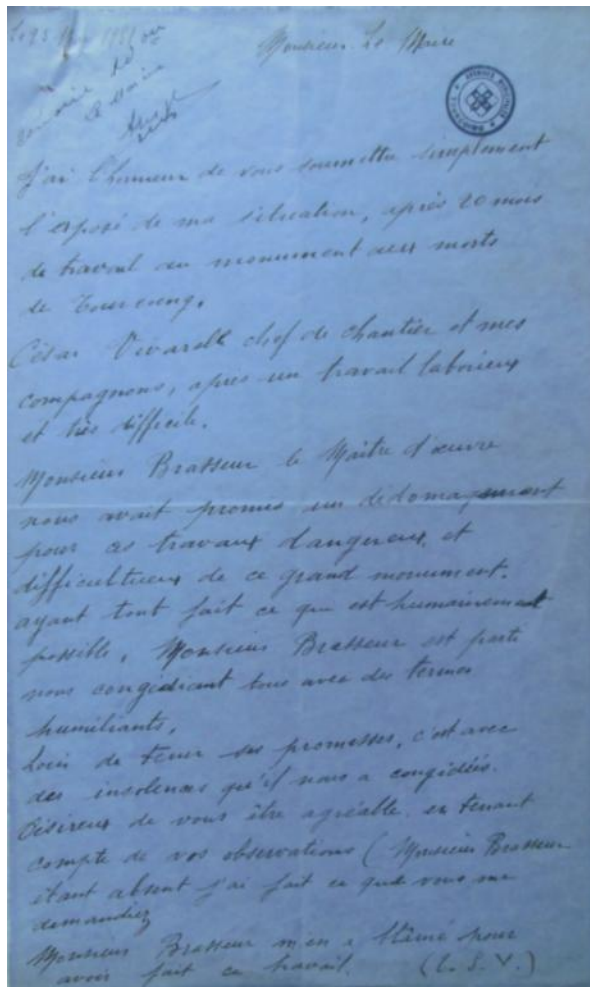 Monsieur Le Maire
J'ai l'honneur de vous soumettre simplement
l'exposé de ma situation, après 20 mois
de travail au monument aux morts
de Tourcoing.
César Vivarelli chef de chantier et mes
compagnons, après un travail laborieux
et très difficile.
Monsieur Brasseur le Maître d'œuvre
nous avait promis un dédomagement
pour ces travaux dangereux, et
difficultueux de ce grand monument.
ayant tout fait ce que est humainement
possible, Monsieur Brasseur est parti
nous congédiant tous avec des termes
humiliants.
Loin de tenir ses promesses, c'est avec
des insolences qu'il nous a congidiés.
Désireux de vous être agréable. en tenant
compte de vos observations (Monsieur Brasseur
étant absent j'ai fait ce que vous me
demandiez
Monsieur Brasseur m'en a blâmé pour
avoir fait ce travail. (T. S. V.)